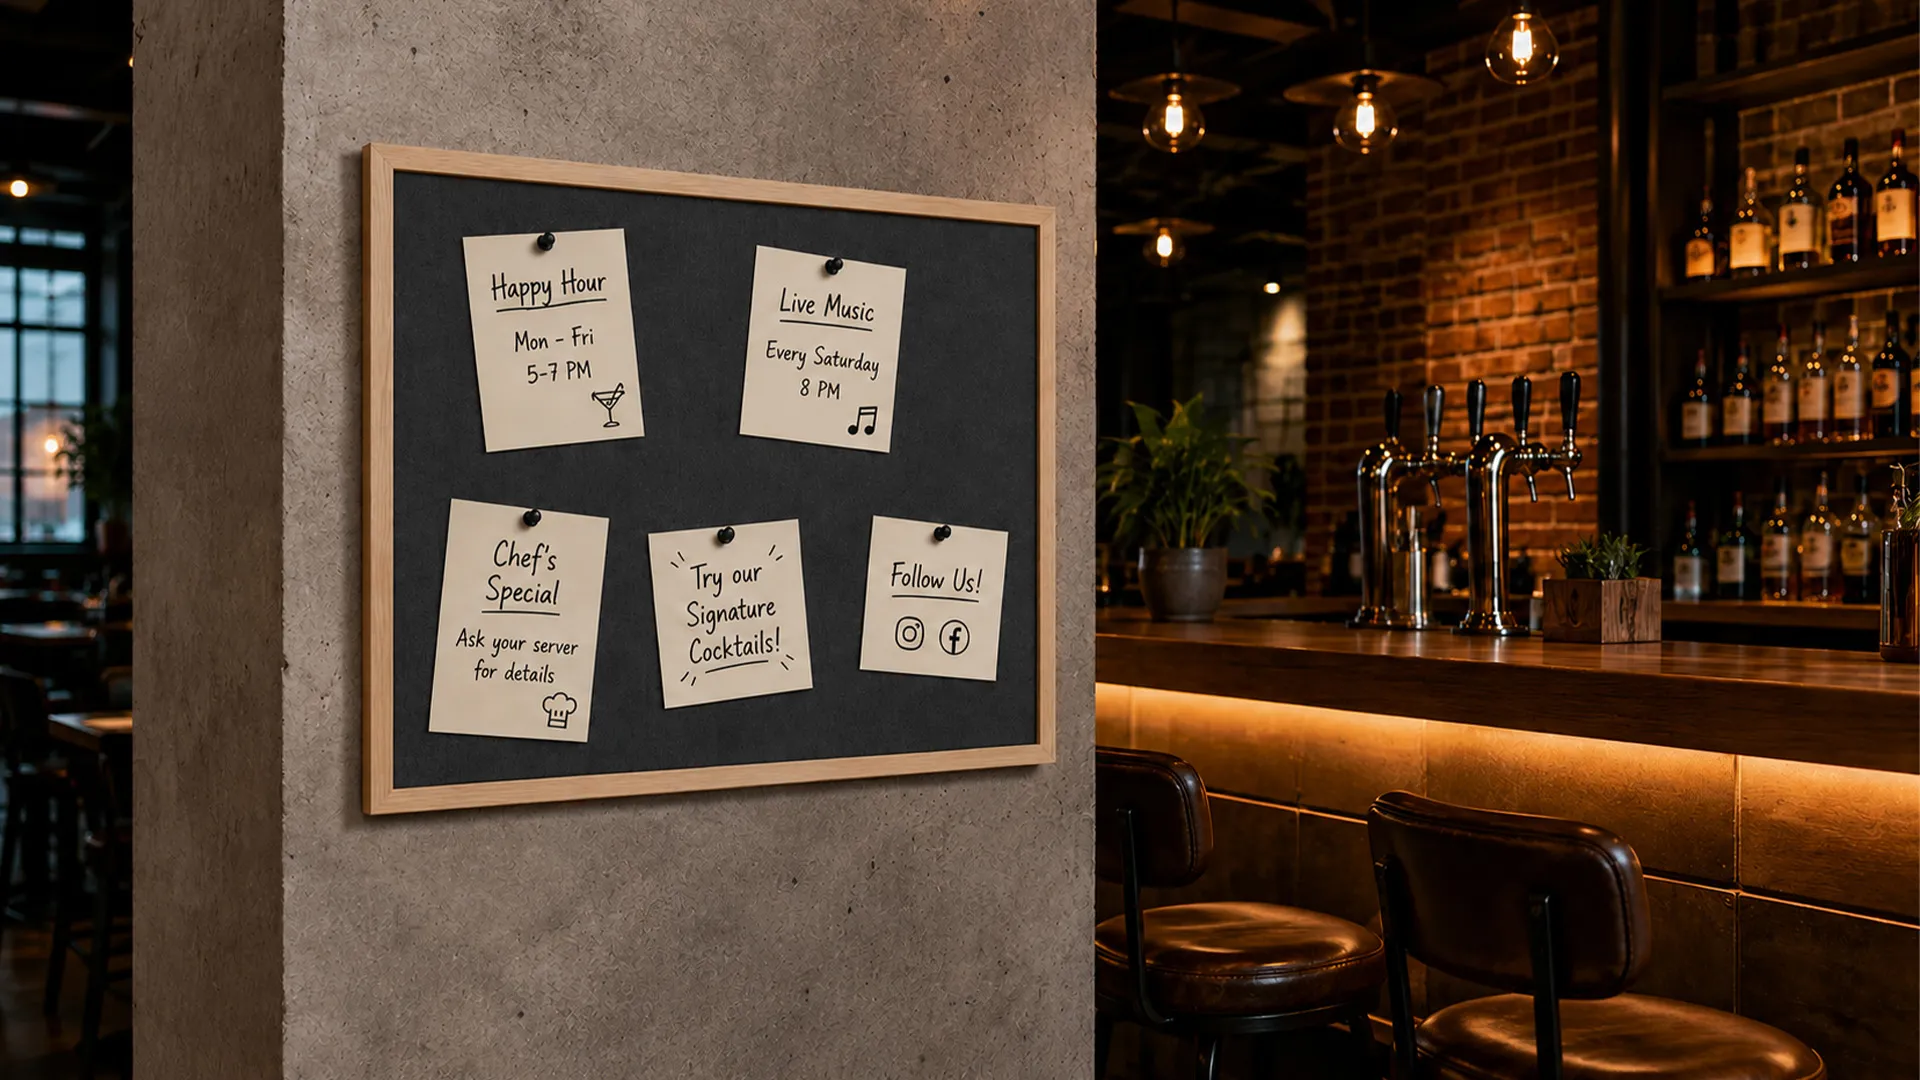 Happy Hour
Mon - Fri
5-7 PM
Live Music
Every Saturday
8 PM
Chef's
Special
Ask your server
for details
Try our
Signature
Cocktails!
Follow Us!